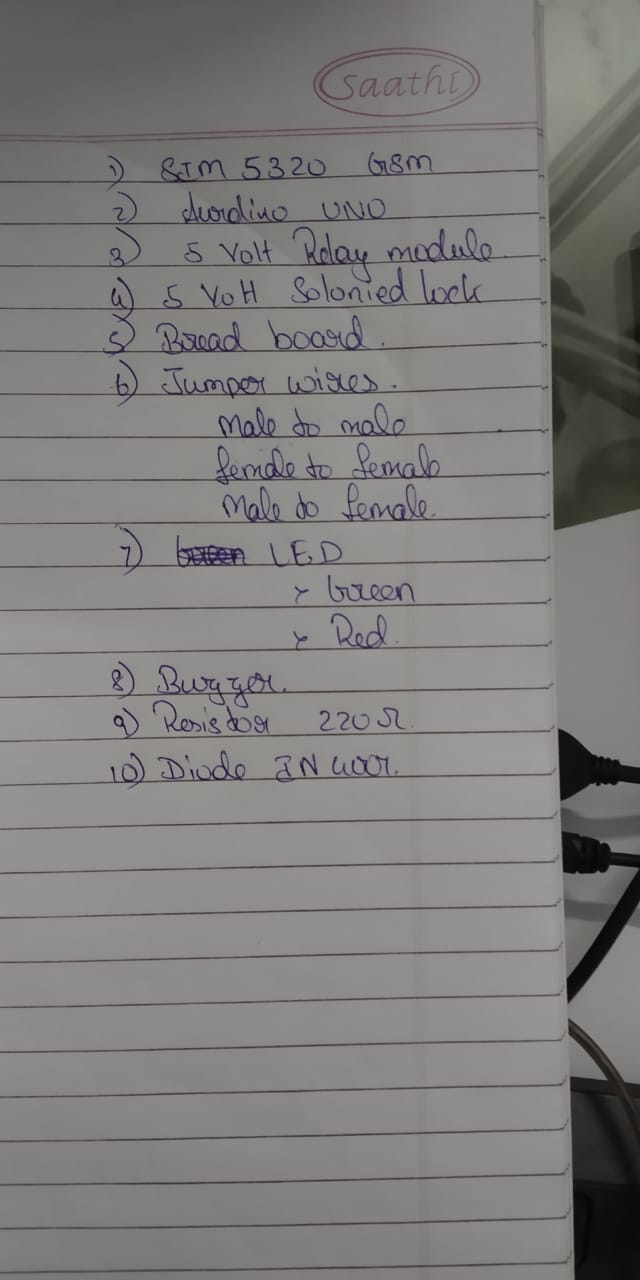 Saathi
1) SIM 5320 GSM
2) Aurdino UNO
3) 5 Volt Relay module
4) 5 Volt Solonied lock
5) Bread board.
6) Jumper wires.
male to male
female to female
Male to female.
7) LED
Green
Red.
8) Buzzer.
9) Resistor 220Ω.
10) Diode IN 4001.